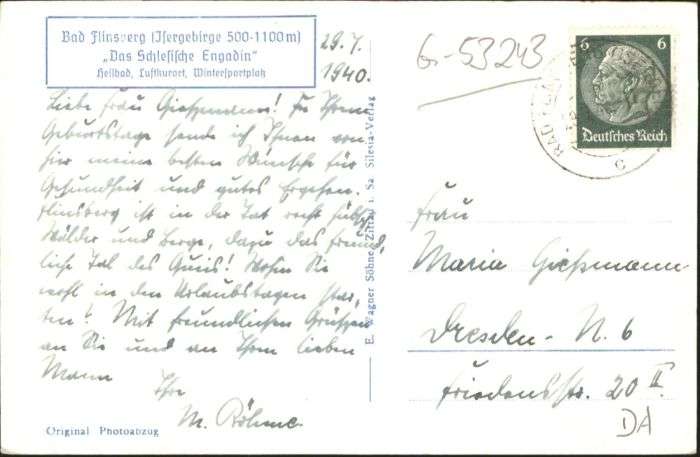 Bad Flinsberg (Isergebirge 500-1100m)
„Das Schlesische Engadin“
Heilbad, Luftkurort, Wintersportplatz
29.7.
1940.
Liebe Frau Gießmann! Zu Ihrem
Geburtstage sende ich Ihnen von
hier meine besten Wünsche für
Gesundheit und gutes Ergehen.
Flinsberg ist in der Tat recht hübsch,
Wälder und Berge, dazu das freund-
liche Tal des Queis! Wohin Sie
wohl in den Urlaubstagen star-
ten? Mit freundlichen Grüßen
an Sie und an Ihren lieben
Mann
Ihre
M. Röhme
Original Photoabzug
E. Wagner Söhne, Zittau i. Sa. Silesia-Verlag
G-53243
6 6
Deutsches Reich
BAD FLINSBERG
Frau
Maria Gießmann
Dresden-N. 6
Friedensstr. 20 II.
DA